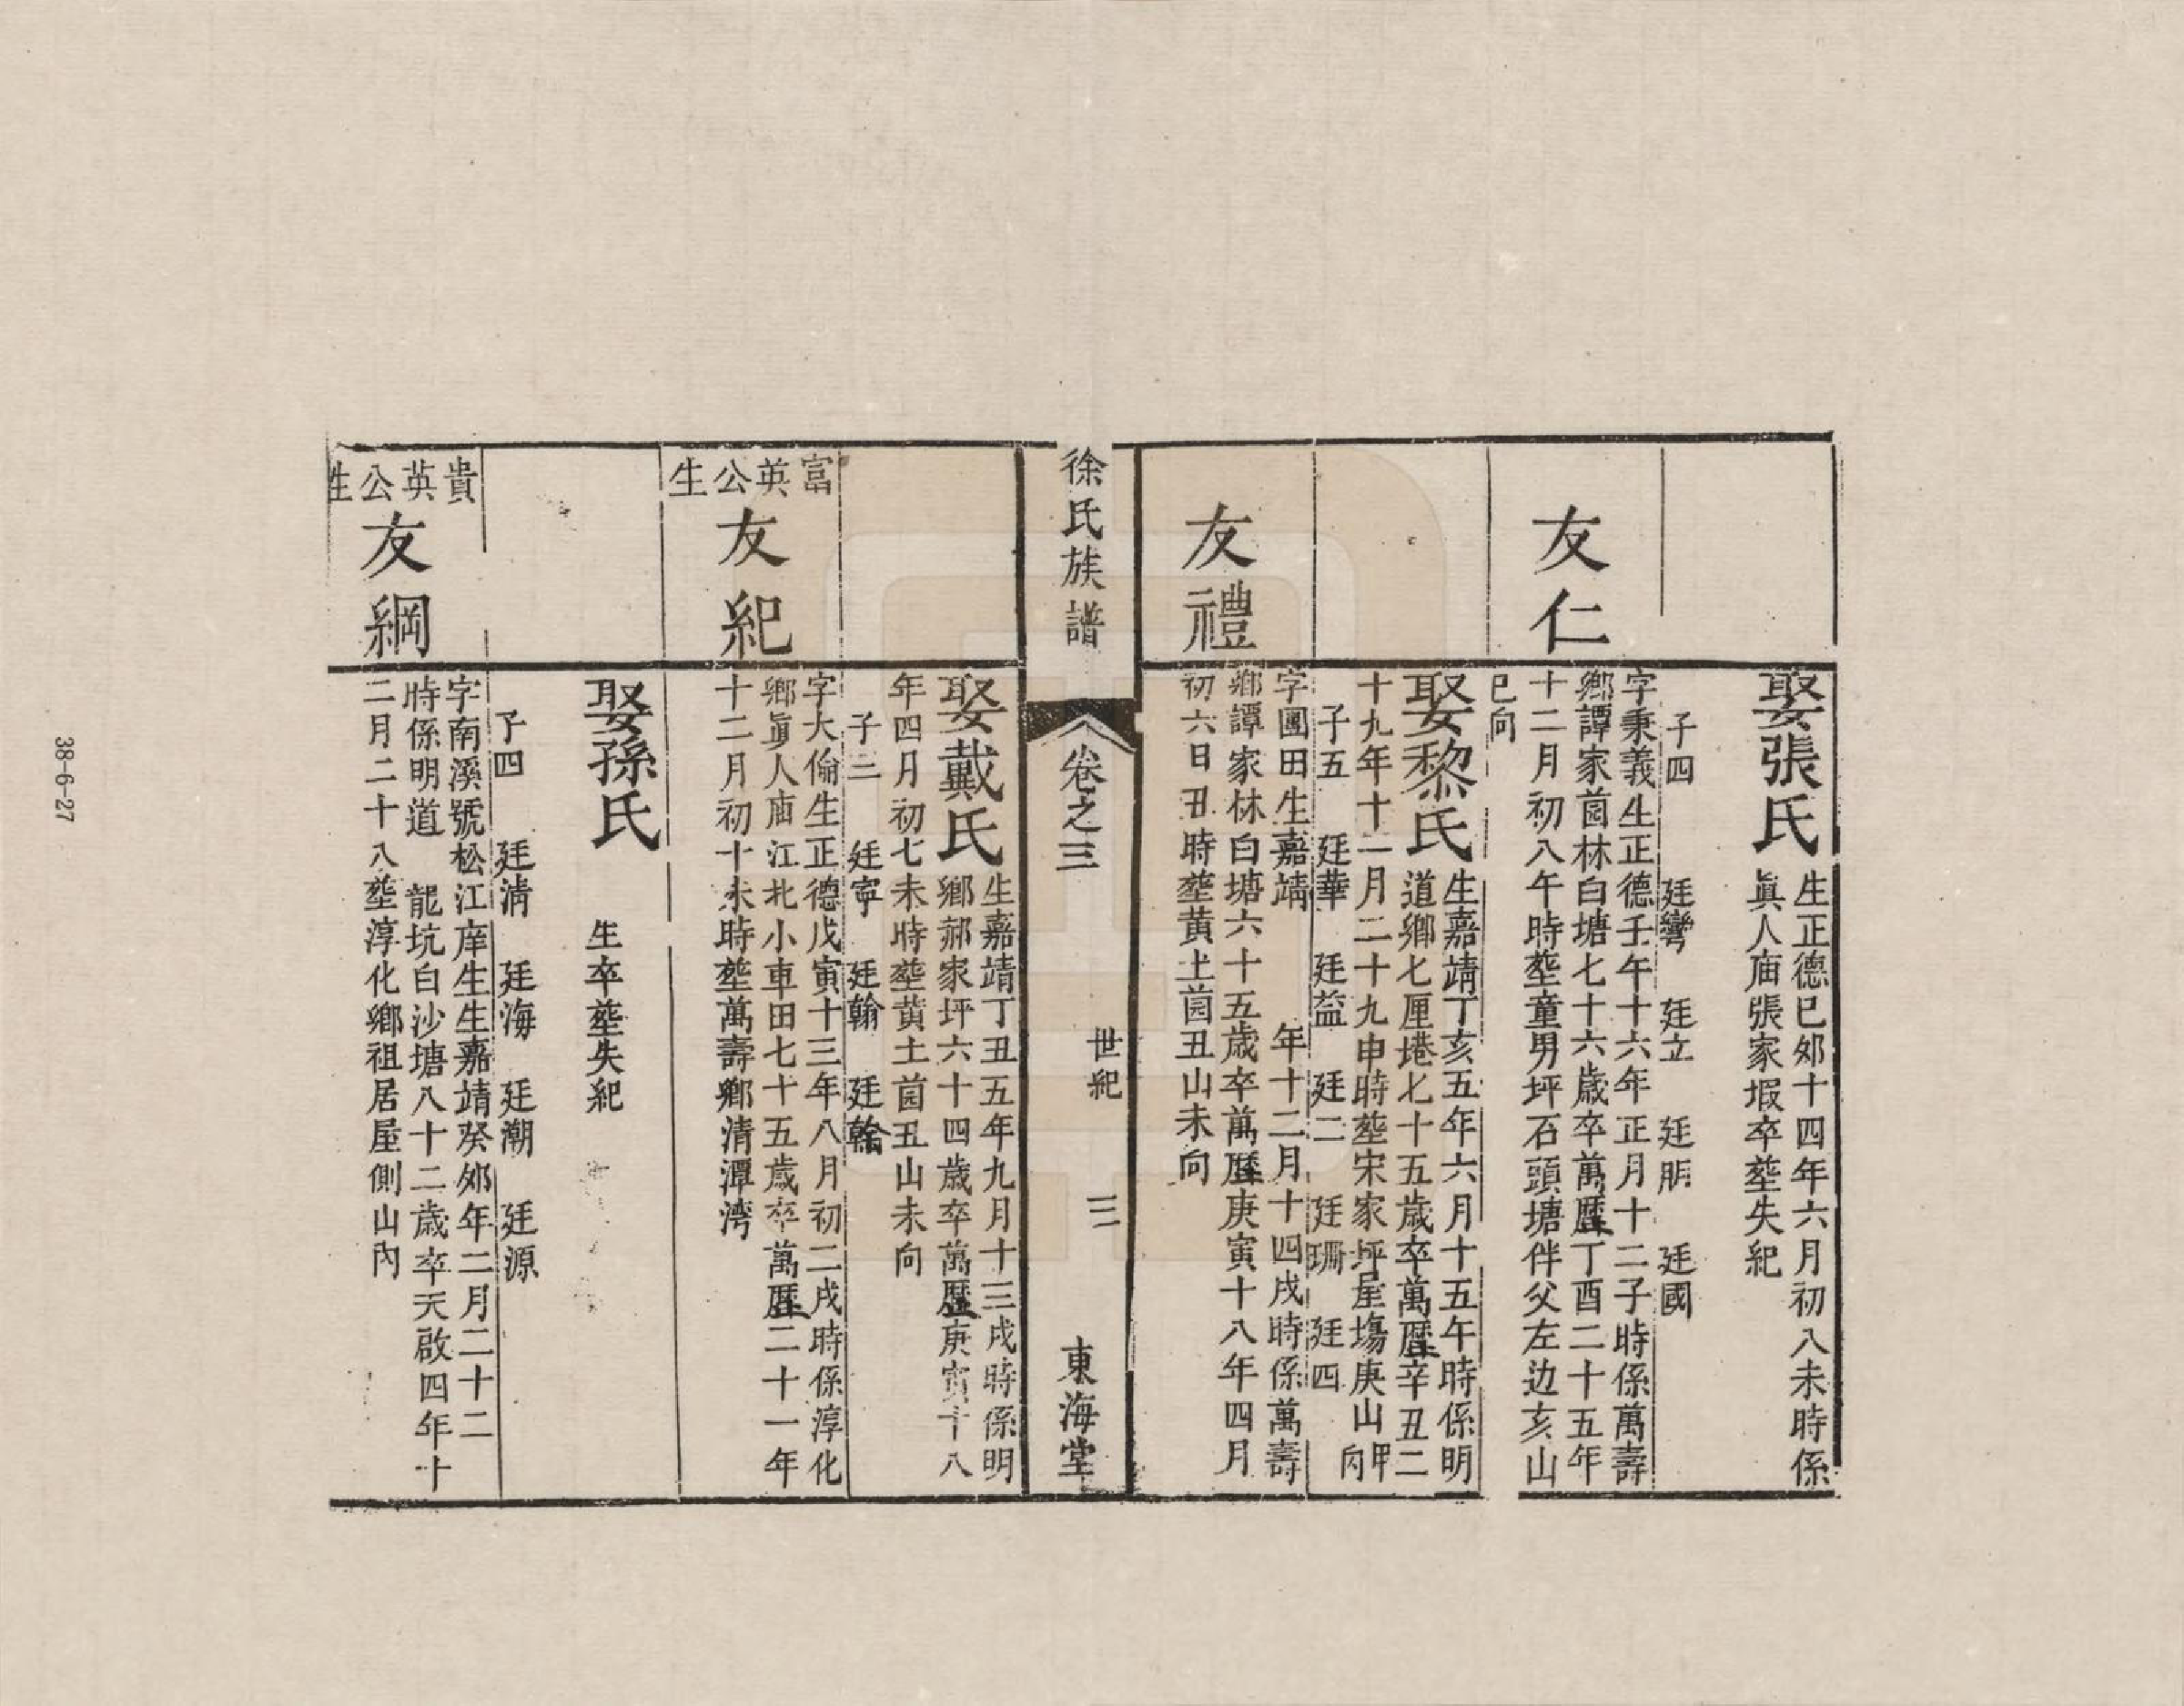 娶張氏
生正德己夘十四年六月初八未時係
眞人庙張家塅卒塟失紀
子四 廷彎 廷立 廷朋 廷國
友仁
字秉義生正德壬午十六年正月十二子時係萬壽
鄉譚家茵林白塘七十六歲卒萬曆丁酉二十五年
十二月初八午時塟童男坪石頭塘伴父左边亥山
巳向
娶黎氏
生嘉靖丁亥五年六月十五午時係明
道鄉七厘塂七十五歲卒萬曆辛丑二
十九年十一月二十九申時塟宋家坪屋塲庚山甲向
子五 廷華 廷益 廷二 廷珊 廷四
友禮
字團田生嘉靖 年十二月十四戌時係萬壽
鄉譚家林白塘六十五歲卒萬曆庚寅十八年四月
初六日丑時塟黄土茵丑山未向
徐氏族譜
卷之三
世紀
三
東海堂
娶戴氏
生嘉靖丁丑五年九月十三戌時係明
鄉郝家坪六十四歲卒萬曆庚寅十八
年四月初七未時塟黄土茵丑山未向
子三 廷寜 廷翰 廷䡖
富英公生
友紀
字大倫生正德戊寅十三年八月初二戌時係淳化
鄉眞人庙江北小車田七十五歲卒萬曆二十一年
十二月初十未時塟萬壽鄉清潭湾
娶孫氏
生卒塟失紀
子四 廷淸 廷海 廷潮 廷源
貴英公生
友綱
字南溪號松江庠生生嘉靖癸夘年二月二十二
時係明道 龍坑白沙塘八十二歲卒天啟四年十
二月二十八塟淳化鄉祖居屋側山內
38-6-27